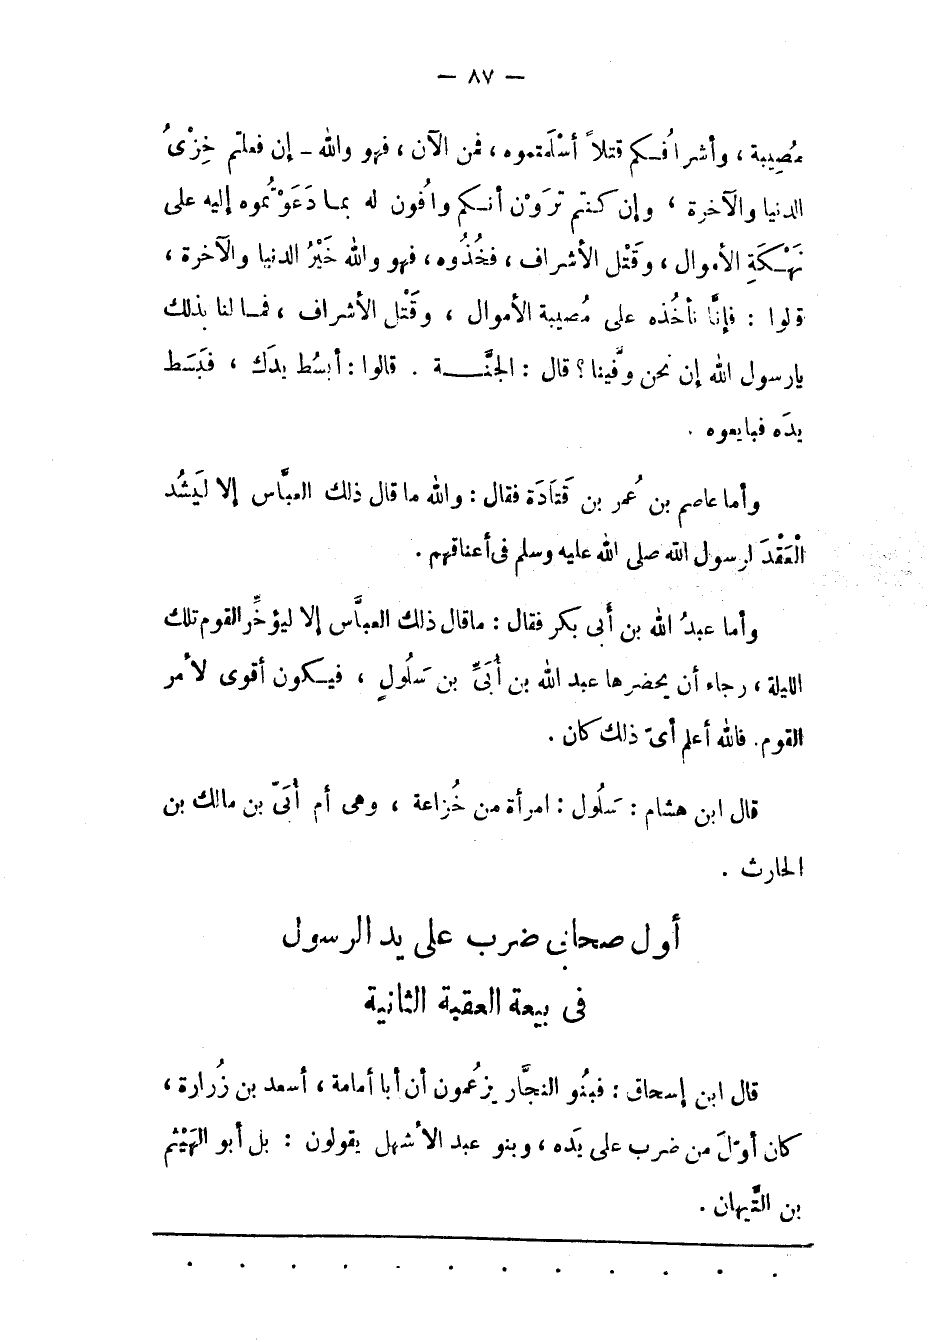 — ٨٧ —
مُصِيبة ، وأشرافُـكم قتلاً أسْلَمتموه ، فمن الآن ، فهو والله ـ إن فعلتم خِزْىُ
الدنيا والآخرة ، وإن كنتم تَرَوْن أنـكم وافُون له بمـا دَعَوْتُموه إليه على
نَهْـكَةِ الأموال ، وقَتْل الأشراف ، فخُذُوه ، فهو والله خَيْرُ الدنيا والآخرة ،
قولوا : فإنَّا نأخُذه على مُصيبة الأموال ، وقَتْل الأشراف ، فمـا لنا بذلك
يارسول الله إن نحن وفَّينا ؟ قال : الجنَّـــة . قالوا : أبسُط يدَك ، فبَسَط
يدَه فبايعوه .
وأما عاصم بن عُمر بن قَتَادَة فقال : والله ما قال ذلك العبَّاس إلا لَيَشُد
الْعَقْدَ لرسول الله صلى الله عليه وسلم فى أعناقهم .
وأما عبدُ الله بن أَبى بكر فقال : ماقال ذلك العباَّس إلا ليؤخِّر القوم تلك
الليلة ، رجاء أن يحضرها عبد الله بن أُبَىِّ بن سَلُولٍ ، فيـكون أقوى لأمر
القوم. فالله أعلم أىّ ذلك كان .
قال ابن هشام : سَلُول : امرأة من خُزاعة ، وهى أم أُبَىّ بن مالك بن
الحارث .
أول صحابى ضرب على يد الرسول
فى بيعة العقبة الثانية
قال ابن إسحاق : فبنُو النجَّار يزعُمون أن أبا أمامة ، أسعد بن زُرارة ،
كان أوّلَ من ضرب على يَده ، وبنو عبد الأشهل يقولون : بل أبو الهَيْثم
بن التَّيهان .
. . . . . . . . . . . .